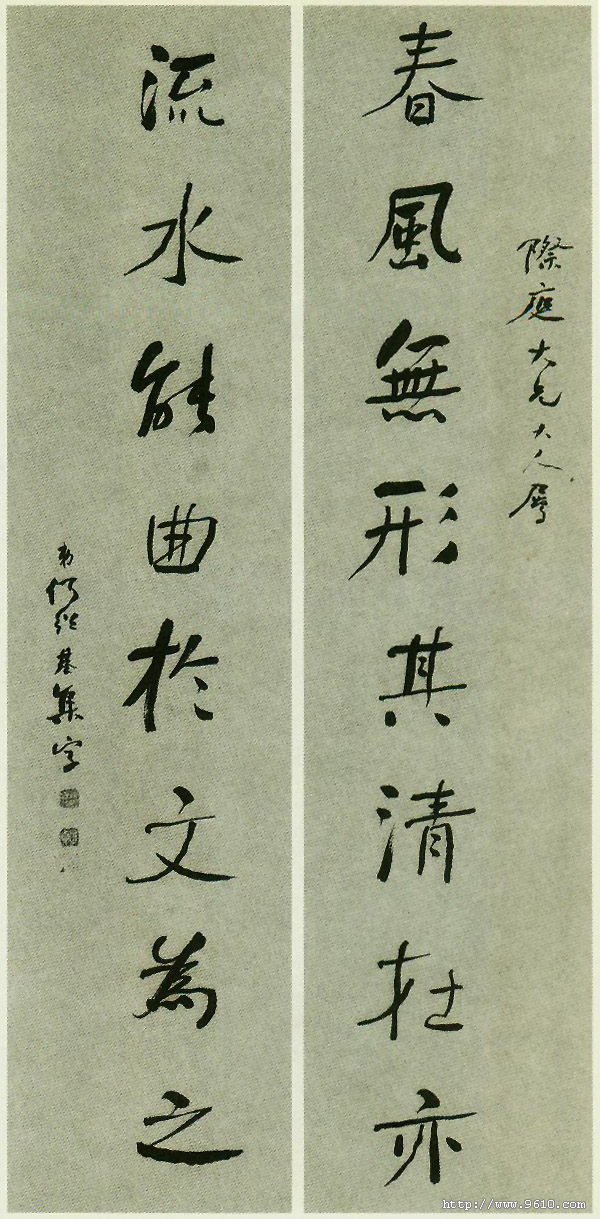 際庭大兄大人屬
春風無形其清在亦
流水能曲於文為之
弟何紹基集字
http://www.9610.com